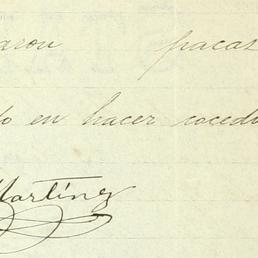 aron pacas
o en hacer coced
Martínez